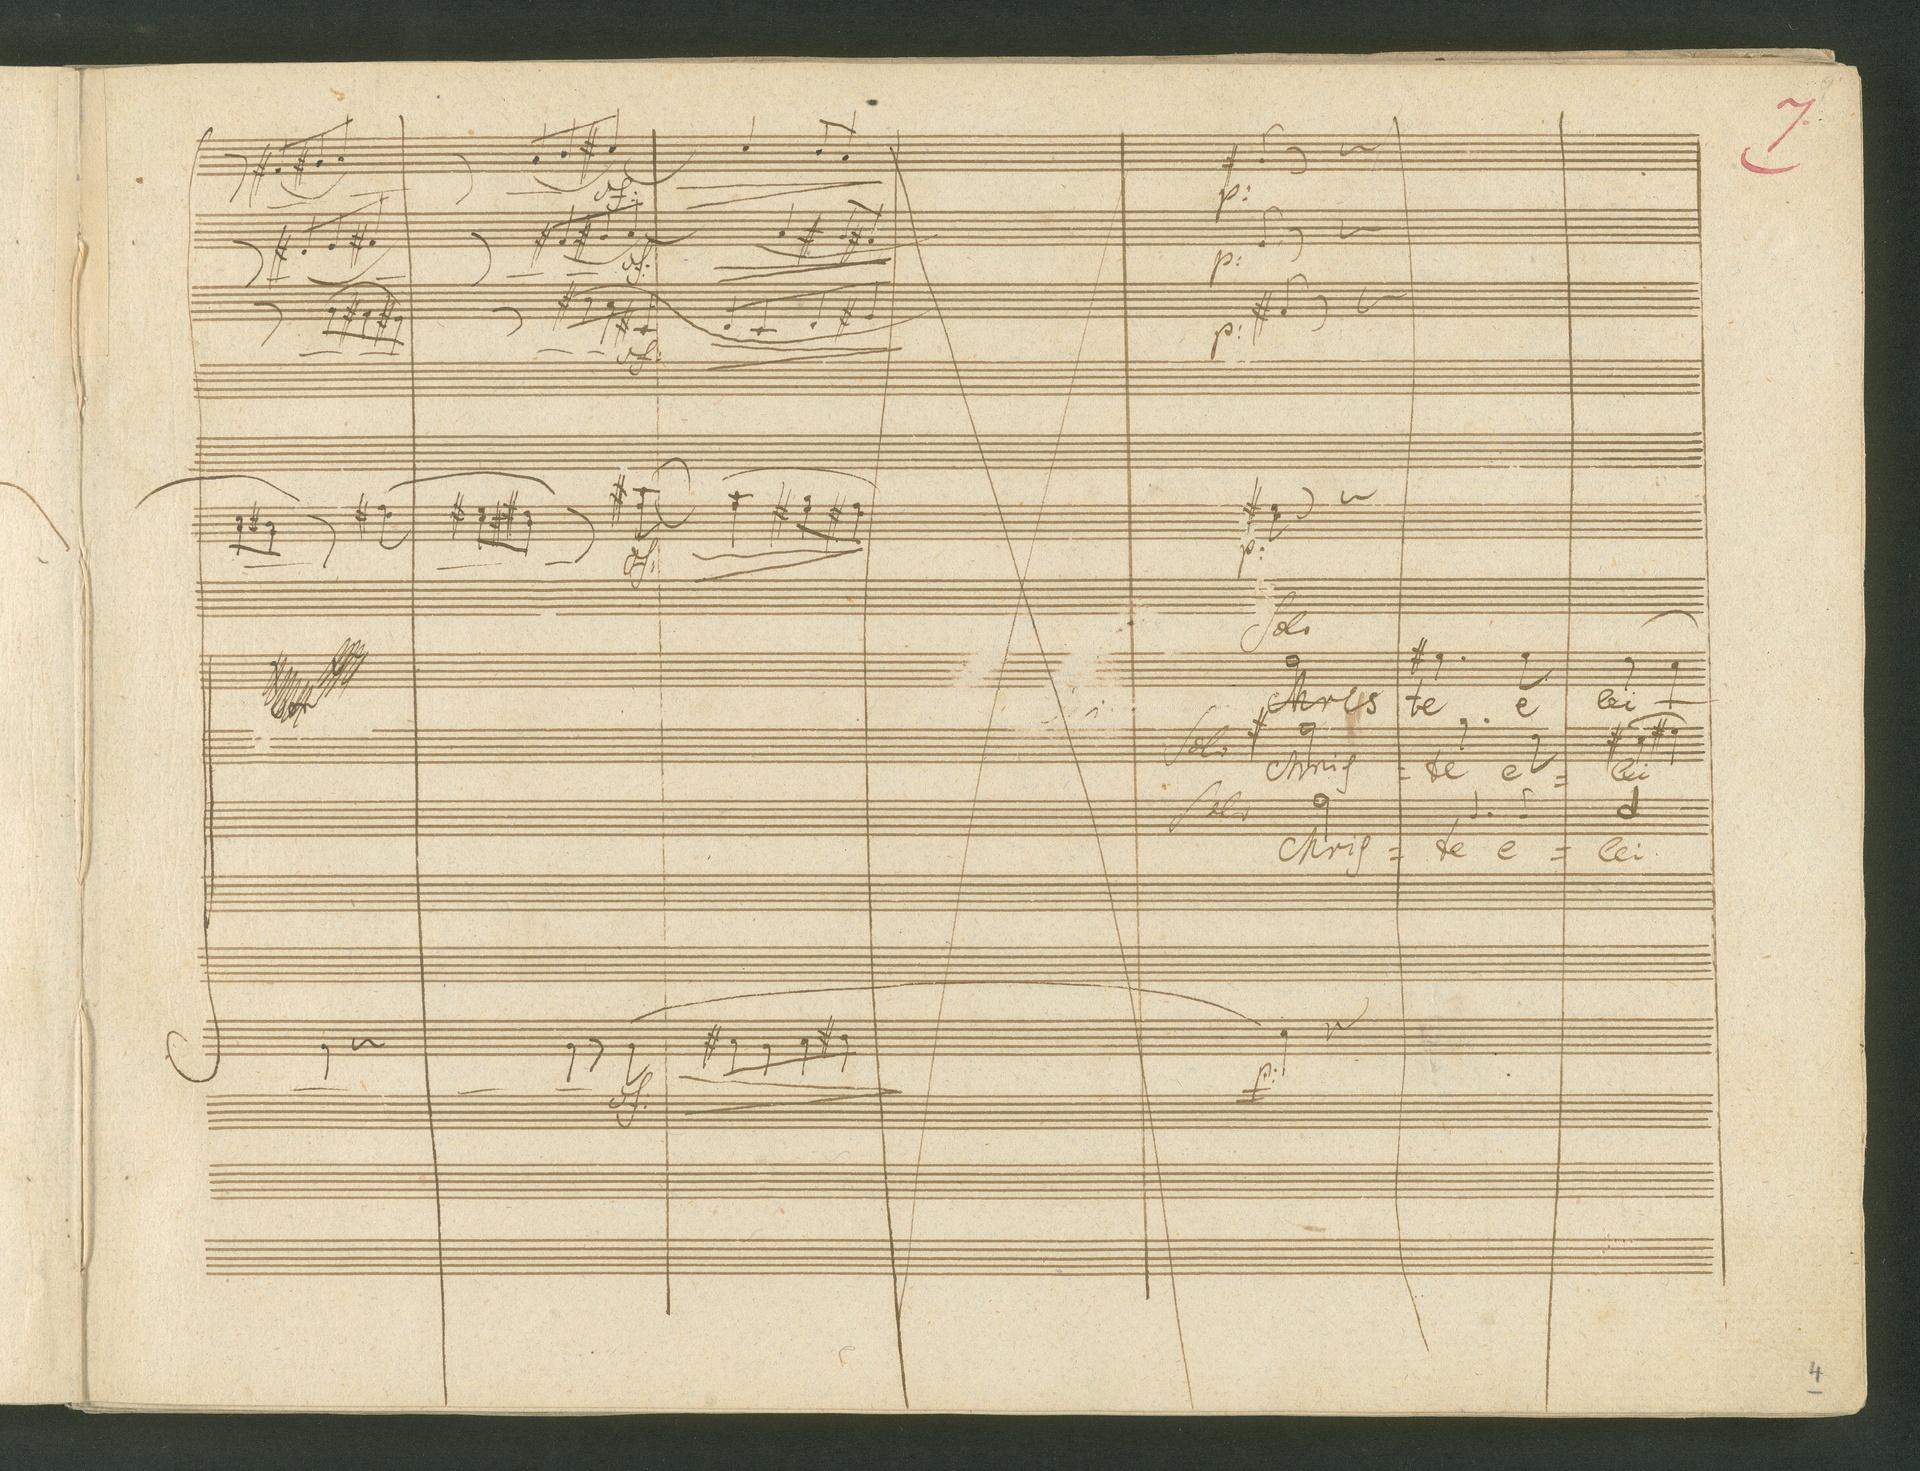 7.
sf:
p:
sf:
p:
sf:
p:
sf:
p:
Solo
Chris te e lei
Solo
chris = te e = lei
Solo
chris = te e = lei
sf:
p:
4